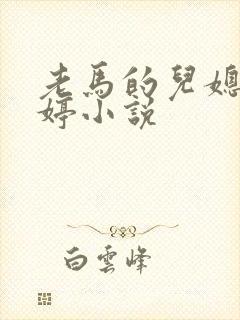 老馬的兒媳
婷小説
白雲峰